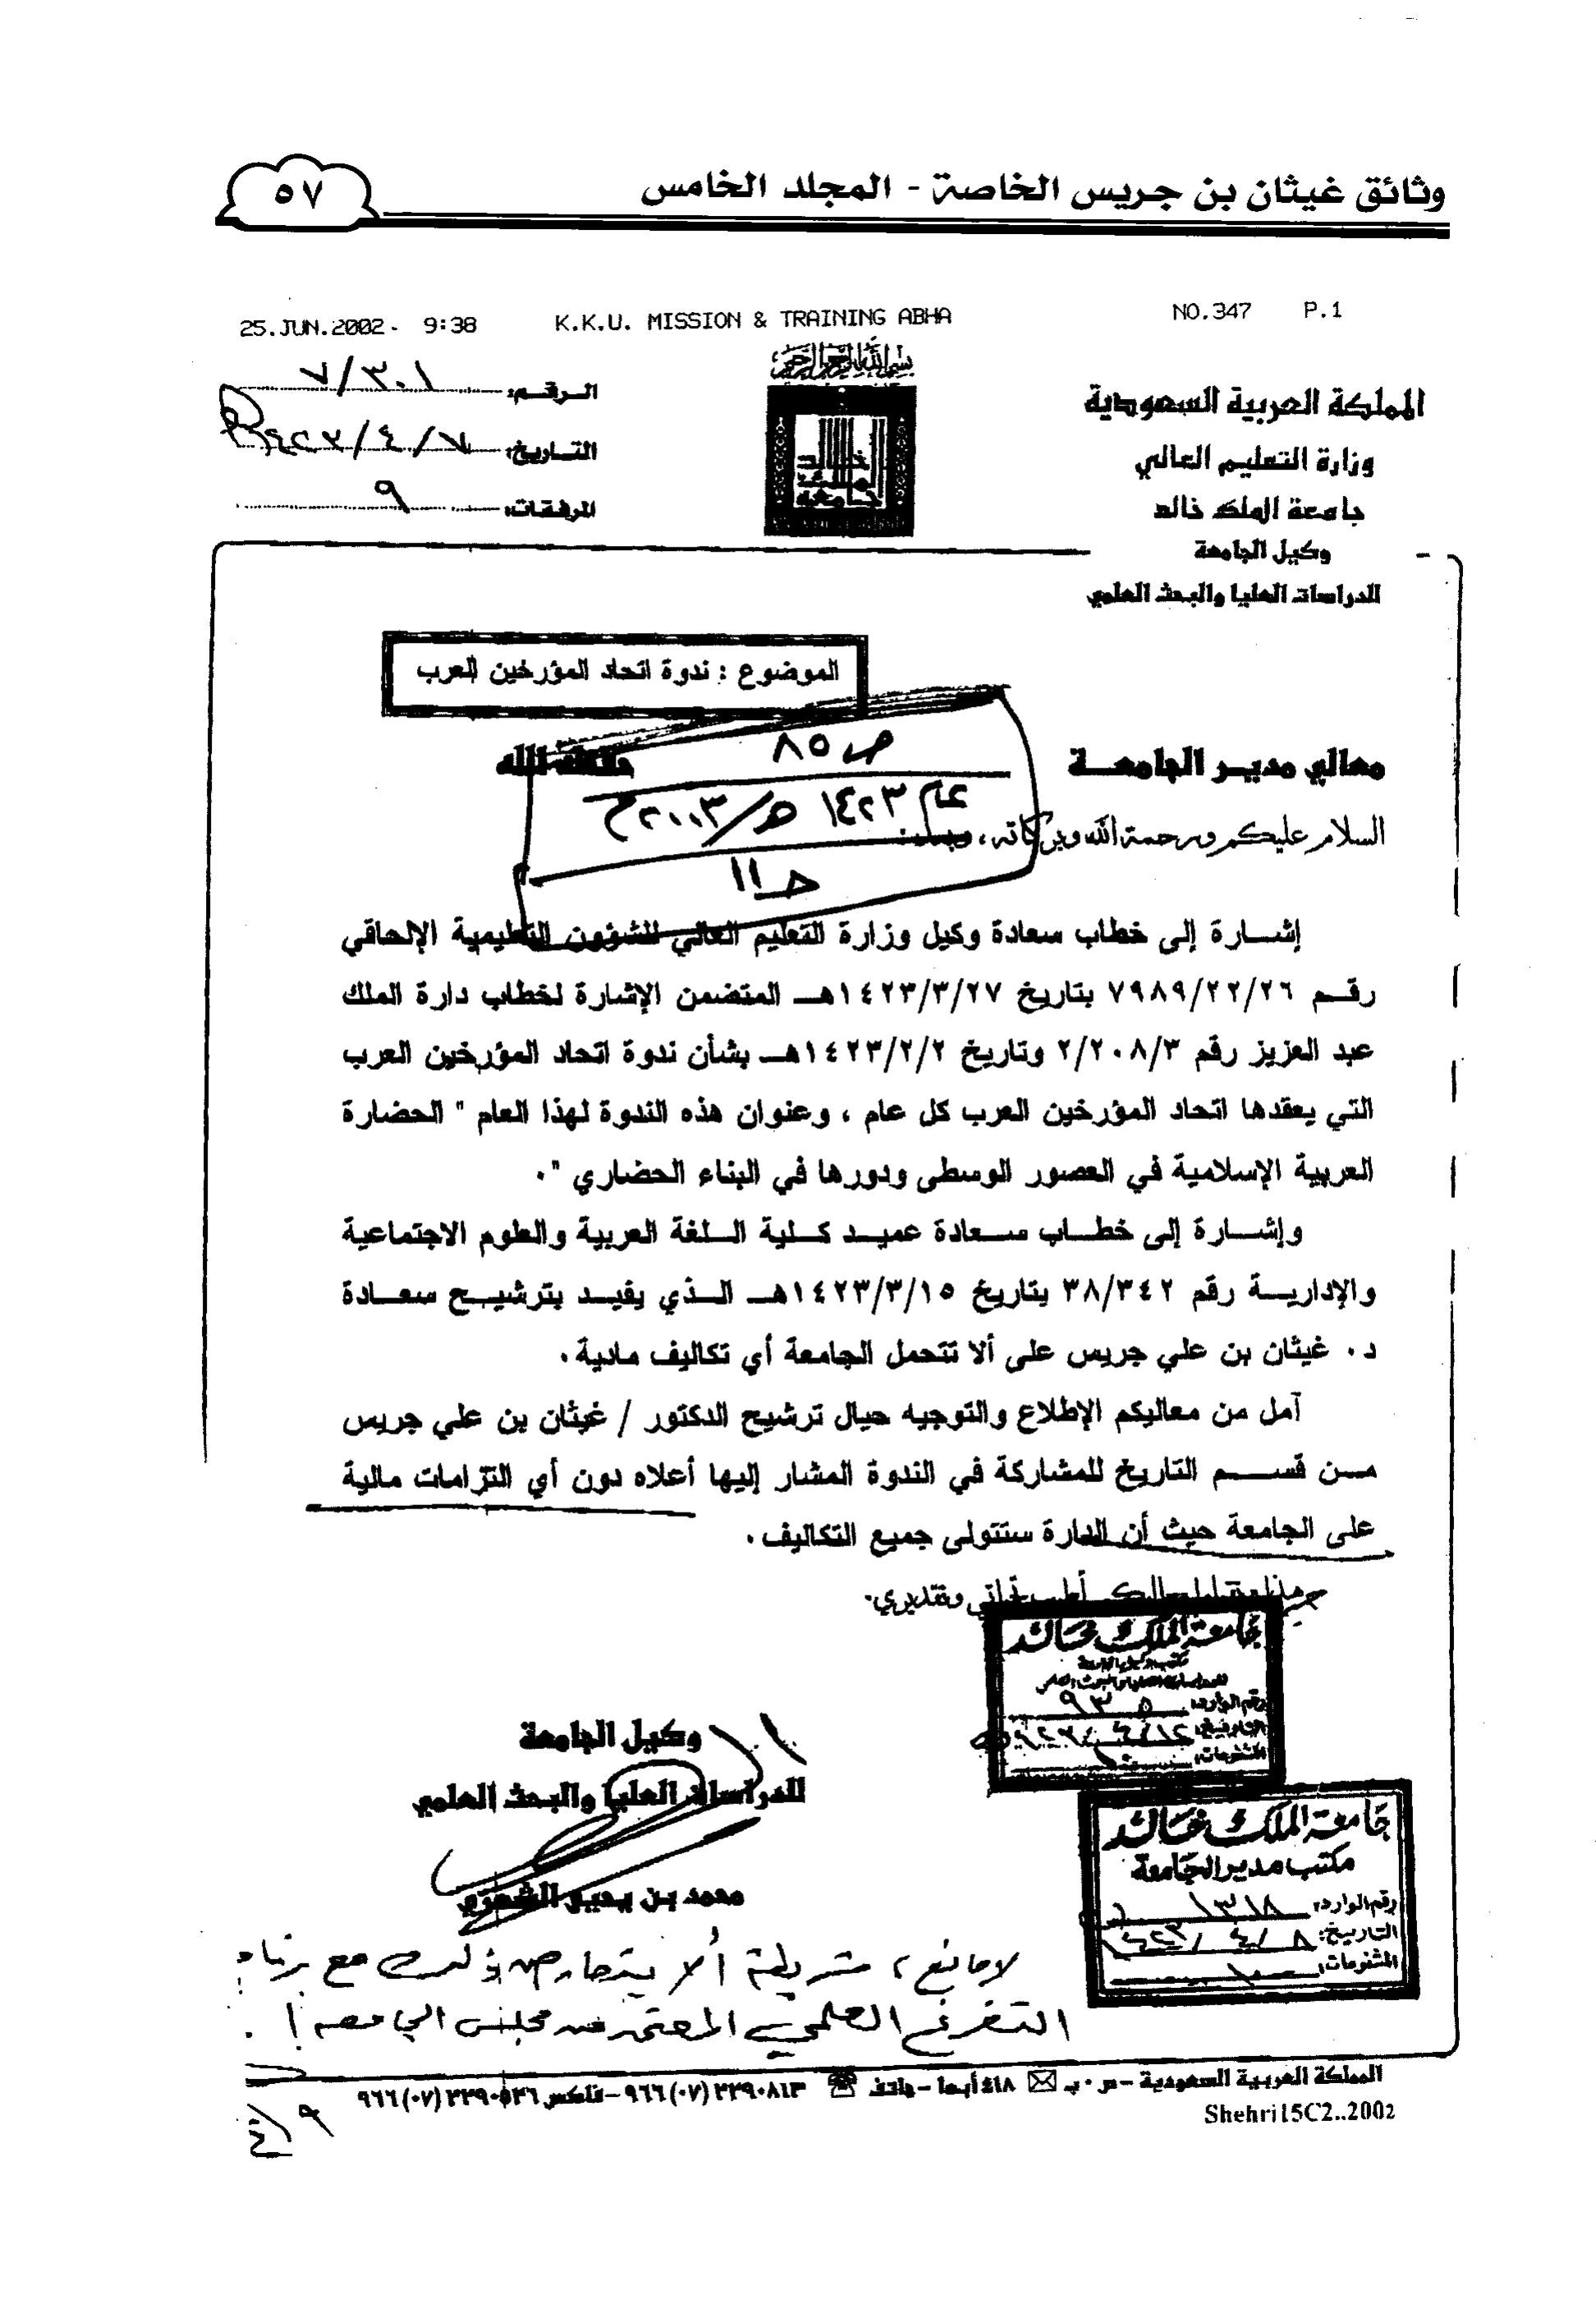 وثائق غيثان بن جريس الخاصة - المجلد الخامس
٥٧
25.JUN.2002- 9:38 K.K.U. MISSION & TRAINING ABHA NO.347 P.1
بسم الله الرحمن الرحيم
المملكة العربية السعودية
وزارة التعليم العالي
جامعة الملك خالد
وكيل الجامعة
للدراسات العليا والبحث العلمي
جامعة الملك خالد
الرقم: ٧/٣٠١
التاريخ: ٧/٤/
المرفقات: ٩
الموضوع : ندوة اتحاد المؤرخين العرب
معالي مدير الجامعة حفظه الله
ص ٨٥
عام ١٤٢٣ هـ/٢٠٠٣م
حـ ١١
السلام عليكم ورحمة الله وبركاته، وبعد:
إشارة إلى خطاب سعادة وكيل وزارة التعليم العالي للشؤون التعليمية الإلحاقي
رقم ٧٩٨٩/٢٢/٢٦ بتاريخ ١٤٢٣/٣/٢٧هـ المتضمن الإشارة لخطاب دارة الملك
عبد العزيز رقم ٢/٢٠٨/٣ وتاريخ ١٤٢٣/٢/٢هـ بشأن ندوة اتحاد المؤرخين العرب
التي يعقدها اتحاد المؤرخين العرب كل عام ، وعنوان هذه الندوة لهذا العام " الحضارة
العربية الإسلامية في العصور الوسطى ودورها في البناء الحضاري ".
وإشارة إلى خطاب سعادة عميد كلية اللغة العربية والعلوم الاجتماعية
والإدارية رقم ٣٨/٣٤٢ بتاريخ ١٤٢٣/٣/١٥هـ الذي يفيد بترشيح سعادة
د. غيثان بن علي جريس على ألا تتحمل الجامعة أي تكاليف مادية.
آمل من معاليكم الإطلاع والتوجيه حيال ترشيح الدكتور / غيثان بن علي جريس
من قسم التاريخ للمشاركة في الندوة المشار إليها أعلاه دون أي التزامات مالية
على الجامعة حيث أن الدارة ستتولى جميع التكاليف.
وتقديري.
جامعة الملك خالد
رقم الوارد: ٩٣٥
التاريخ:
المشفوعات:
وكيل الجامعة
للدراسات العليا والبحث العلمي
محمد بن يحيى
جامعة الملك خالد
مكتب مدير الجامعة
رقم الوارد: ١٣١٨
التاريخ: ٨/٤/
المشفوعات:
لا مانع، شريطة ألا يتعارض ذلك مع
التفرغ العلمي المعتمد من مجلس الجامعة.
المملكة العربية السعودية - ص.ب ٤١٨ أبها - هاتف ٢٢٩٠٨١٣ (٠٧) ٩٦٦ - فاكس ٢٢٩٠٥٢٦ (٠٧) ٩٦٦
Shehri15C2..2002
٩/٤